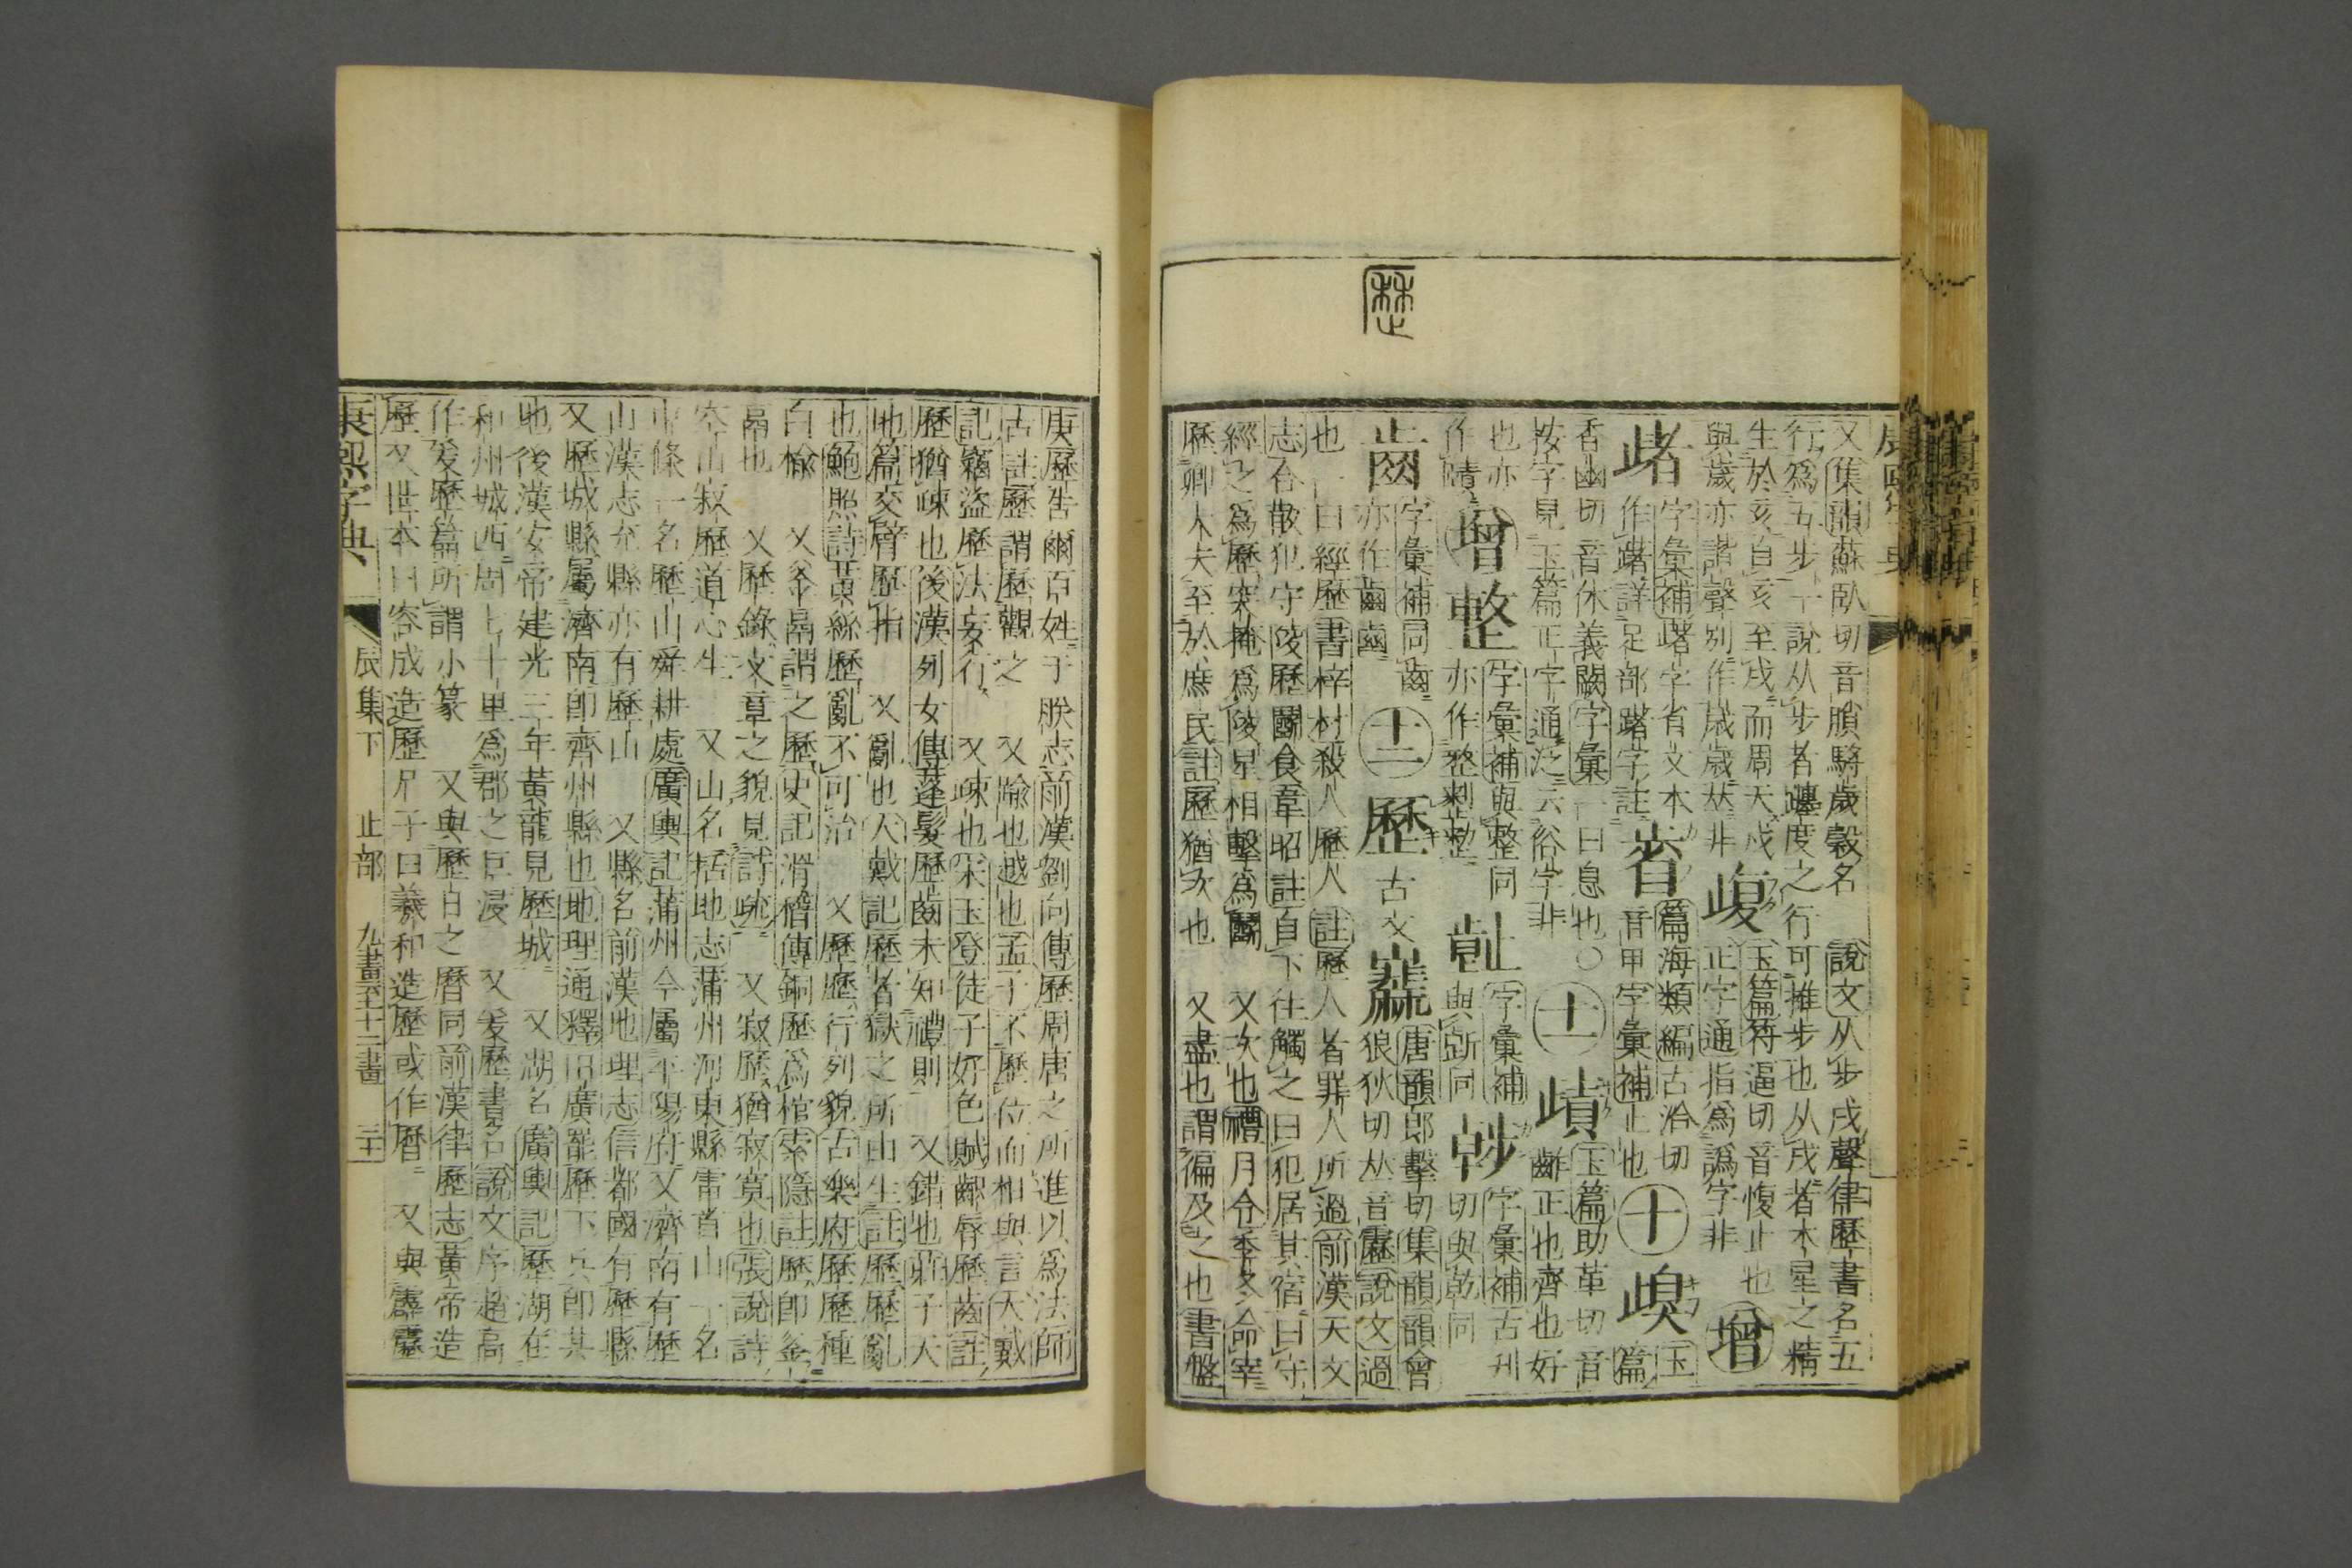 又集韻蘇臥切音膭騎歲穀名 說文从步戌聲律歷書名五
行爲五步十說从步者躔度之行可推步也从戌者木星之精
生於亥自亥至戌而周天戌
與歲亦諧聲別作歳嵗𠀤非
玉篇符逼切音愎止也
正字通指爲譌字非
增
字彙補踷字省文本
作踷詳足部踷字註
篇海類編古洽切
音甲字彙補止也
十
玉
篇
香幽切音休義闕字彙一曰息也○
按字見玉篇正字通泛云俗字非
十一
玉篇助革切音
齰正也齊也好
也亦
作嘖
增
整
字彙補與整同
亦作整
字彙補
與斷同
字彙補古刊
切與乾同
字彙補同齒
亦作齒
十二
歷
古文
唐韻郎擊切集韻韻會
狼狄切𠀤音靂說文過
也一曰經歷書梓材殺人歷人註歷人者罪人所過前漢天文
志合散犯守陵歷鬭食韋昭註自下往觸之曰犯居其宿曰守
經之爲歷突掩爲陵星相擊爲鬭 又次也禮月令季冬命宰
歷卿大夫至於庶民註歷猶次也 又盡也謂徧及之也書盤
庚歷告爾百姓于朕志前漢劉向傳歷周唐之所進以爲法師
古註歷謂歷觀之 又踰也越也孟子不歷位而相與言大戴
記竊盜歷法妄行 又疎也宋玉登徒子好色賦齞脣歷齒註
歷猶疎也後漢列女傳蓬髮歷齒未知禮則 又錯也莊子天
地篇交臂歷指 又亂也大戴記歷者獄之所由生註歷歷亂
也鮑照詩黃絲歷亂不可治 又歷歷行列貌古樂府歷歷種
白榆 又釜鬲謂之歷史記滑稽傳銅歷爲棺索隱註歷卽釜
鬲也 又歷錄文章之貌見詩疏 又寂歷猶寂寞也張說詩
空山寂歷道心生 又山名括地志蒲州河東縣雷首山一名
中條一名歷山舜耕處廣輿記蒲州今屬平陽府又濟南有歷
山漢志充縣亦有歷山 又縣名前漢地理志信都國有歷縣
又歷城縣屬濟南卽齊州縣也地理通釋旧廣罷歷下兵卽其
地後漢安帝建光三年黃龍見歷城 又湖名廣輿記歷湖在
和州城西周七十里爲郡之巨浸 又爰歷書名說文序趙高
作爰歷篇所謂小篆 又與歷日之曆同前漢律歷志黃帝造
歷又世本曰容成造歷尸子曰羲和造歷或作曆 又與霹靂
康熙字典 辰集下 止部 九畫至十二畫 二十